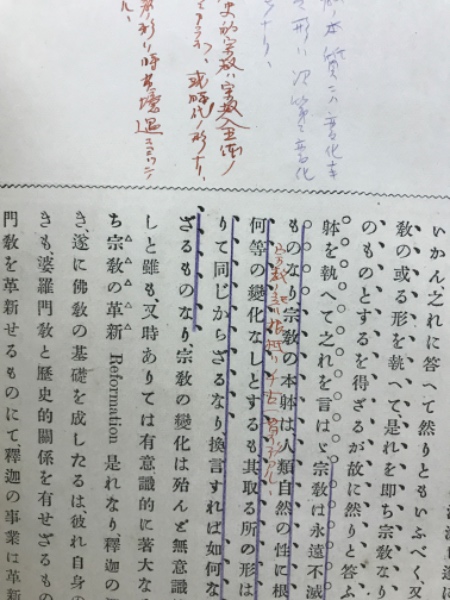 本質ニハ變化ナ
形ハ次第ニ變化
ナリ、
史的宗教ハ宗教
或時代ノ形ナリ、
いかん、之れに答へて然りともいふべく又
敎の或る形を執へて、是れを即ち宗敎なり
のものとするを得ざるが故に然りと答ふ
躰を執へて之を言はゞ宗敎は永遠不滅
ものなり、宗敎の本躰は人類自然の性に根
何等の變化なしとするも其取る所の形は
りて同じからざるなり換言すれば如何な
ざるものなり、宗敎の變化は殆んど無意識
しと雖も、又時ありては有意識的に著大な
ち宗敎の革新 Reformation 是れなり、釋迦の
き、遂に佛敎の基礎を成したるは、彼れ自身の
きも婆羅門敎と歷史的關係を有せざるもの
門敎を革新せるものにて、釋迦の事業は革新